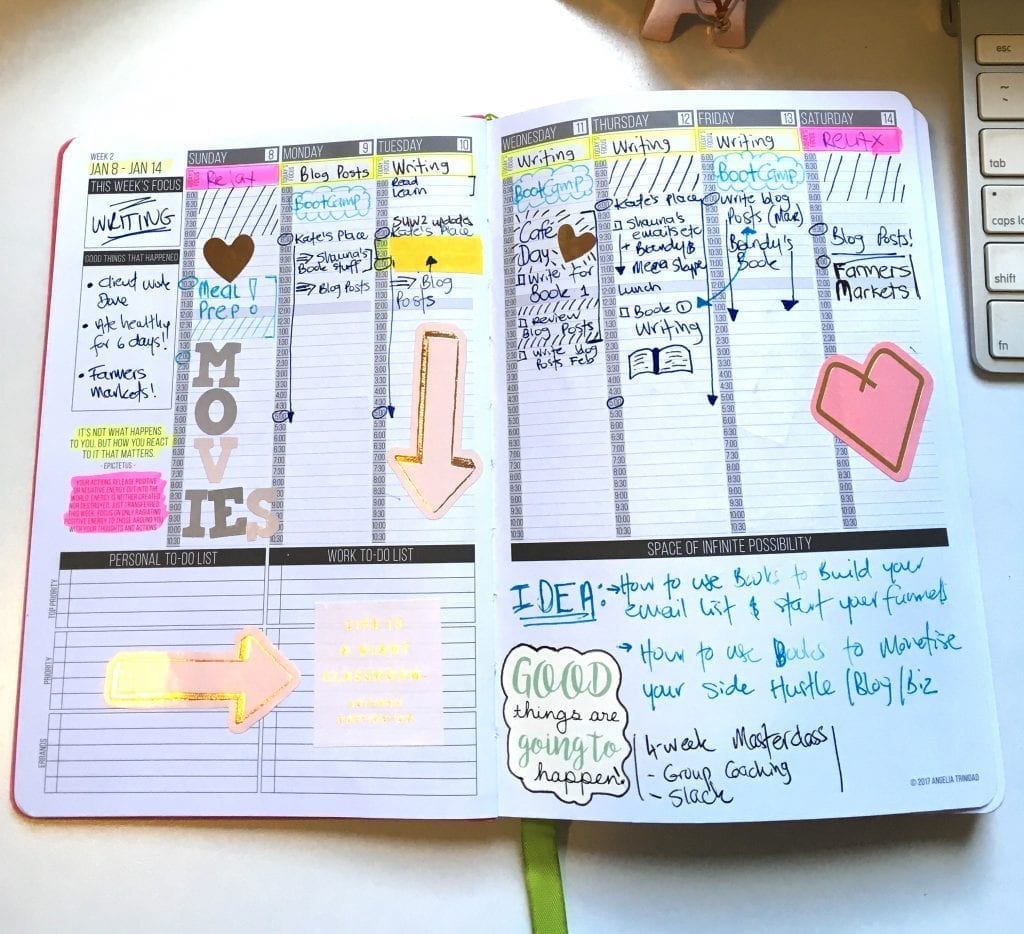 WEEK 2
JAN 8 - JAN 14
THIS WEEK'S FOCUS
WRITING
GOOD THINGS THAT HAPPENED
• Client work
Done
• Ate healthy
for 6 days!!
• Farmers
markets!
IT'S NOT WHAT HAPPENS
TO YOU, BUT HOW YOU REACT
TO IT THAT MATTERS.
- EPICTETUS -
YOUR ACTIONS RELEASE POSITIVE
OR NEGATIVE ENERGY OUT INTO THE
WORLD. ENERGY IS NEITHER CREATED
NOR DESTROYED, JUST TRANSFERRED.
THIS WEEK, FOCUS ON ONLY RADIATING
POSITIVE ENERGY TO THOSE AROUND YOU
WITH YOUR THOUGHTS AND ACTIONS
SUNDAY 8
Relax
Meal
Prep!
MOVIES
MONDAY 9
Blog Posts
BootCamp
Kate's Place
⇒ Shauna's
Book stuff
⇒ Blog Posts
TUESDAY 10
Writing
Read
Learn
SYW2 updates
Kate's Place
⇒ Blog
Posts
WEDNESDAY 11
Writing
BootCamp
Café
Day
Write for
Book 1
Review
Blog Posts
Write blog
Posts Feb
THURSDAY 12
Writing
Kate's Place
Shauna's
emails etc
+
Lunch
Book ①
Writing
FRIDAY 13
Writing
BootCamp
Write blog
Posts (Mar)
Book
SATURDAY 14
Relax
Blog Posts!
Farmers
Markets
PERSONAL TO-DO LIST
WORK TO-DO LIST
TOP PRIORITY
PRIORITY
ERRANDS
LIFE IS
A
CLASSROOM
SPACE OF INFINITE POSSIBILITY
IDEA: → How to use Books to Build your
email list & start your funnels
→ How to use Books to Monetise
your Side Hustle/Blog/Biz
GOOD
things are
going to
happen!
4-week Masterclass
- Group Coaching
- Slack
© 2017 ANGELIA TRINIDAD
esc
~
`
tab
caps lo
shift
fn